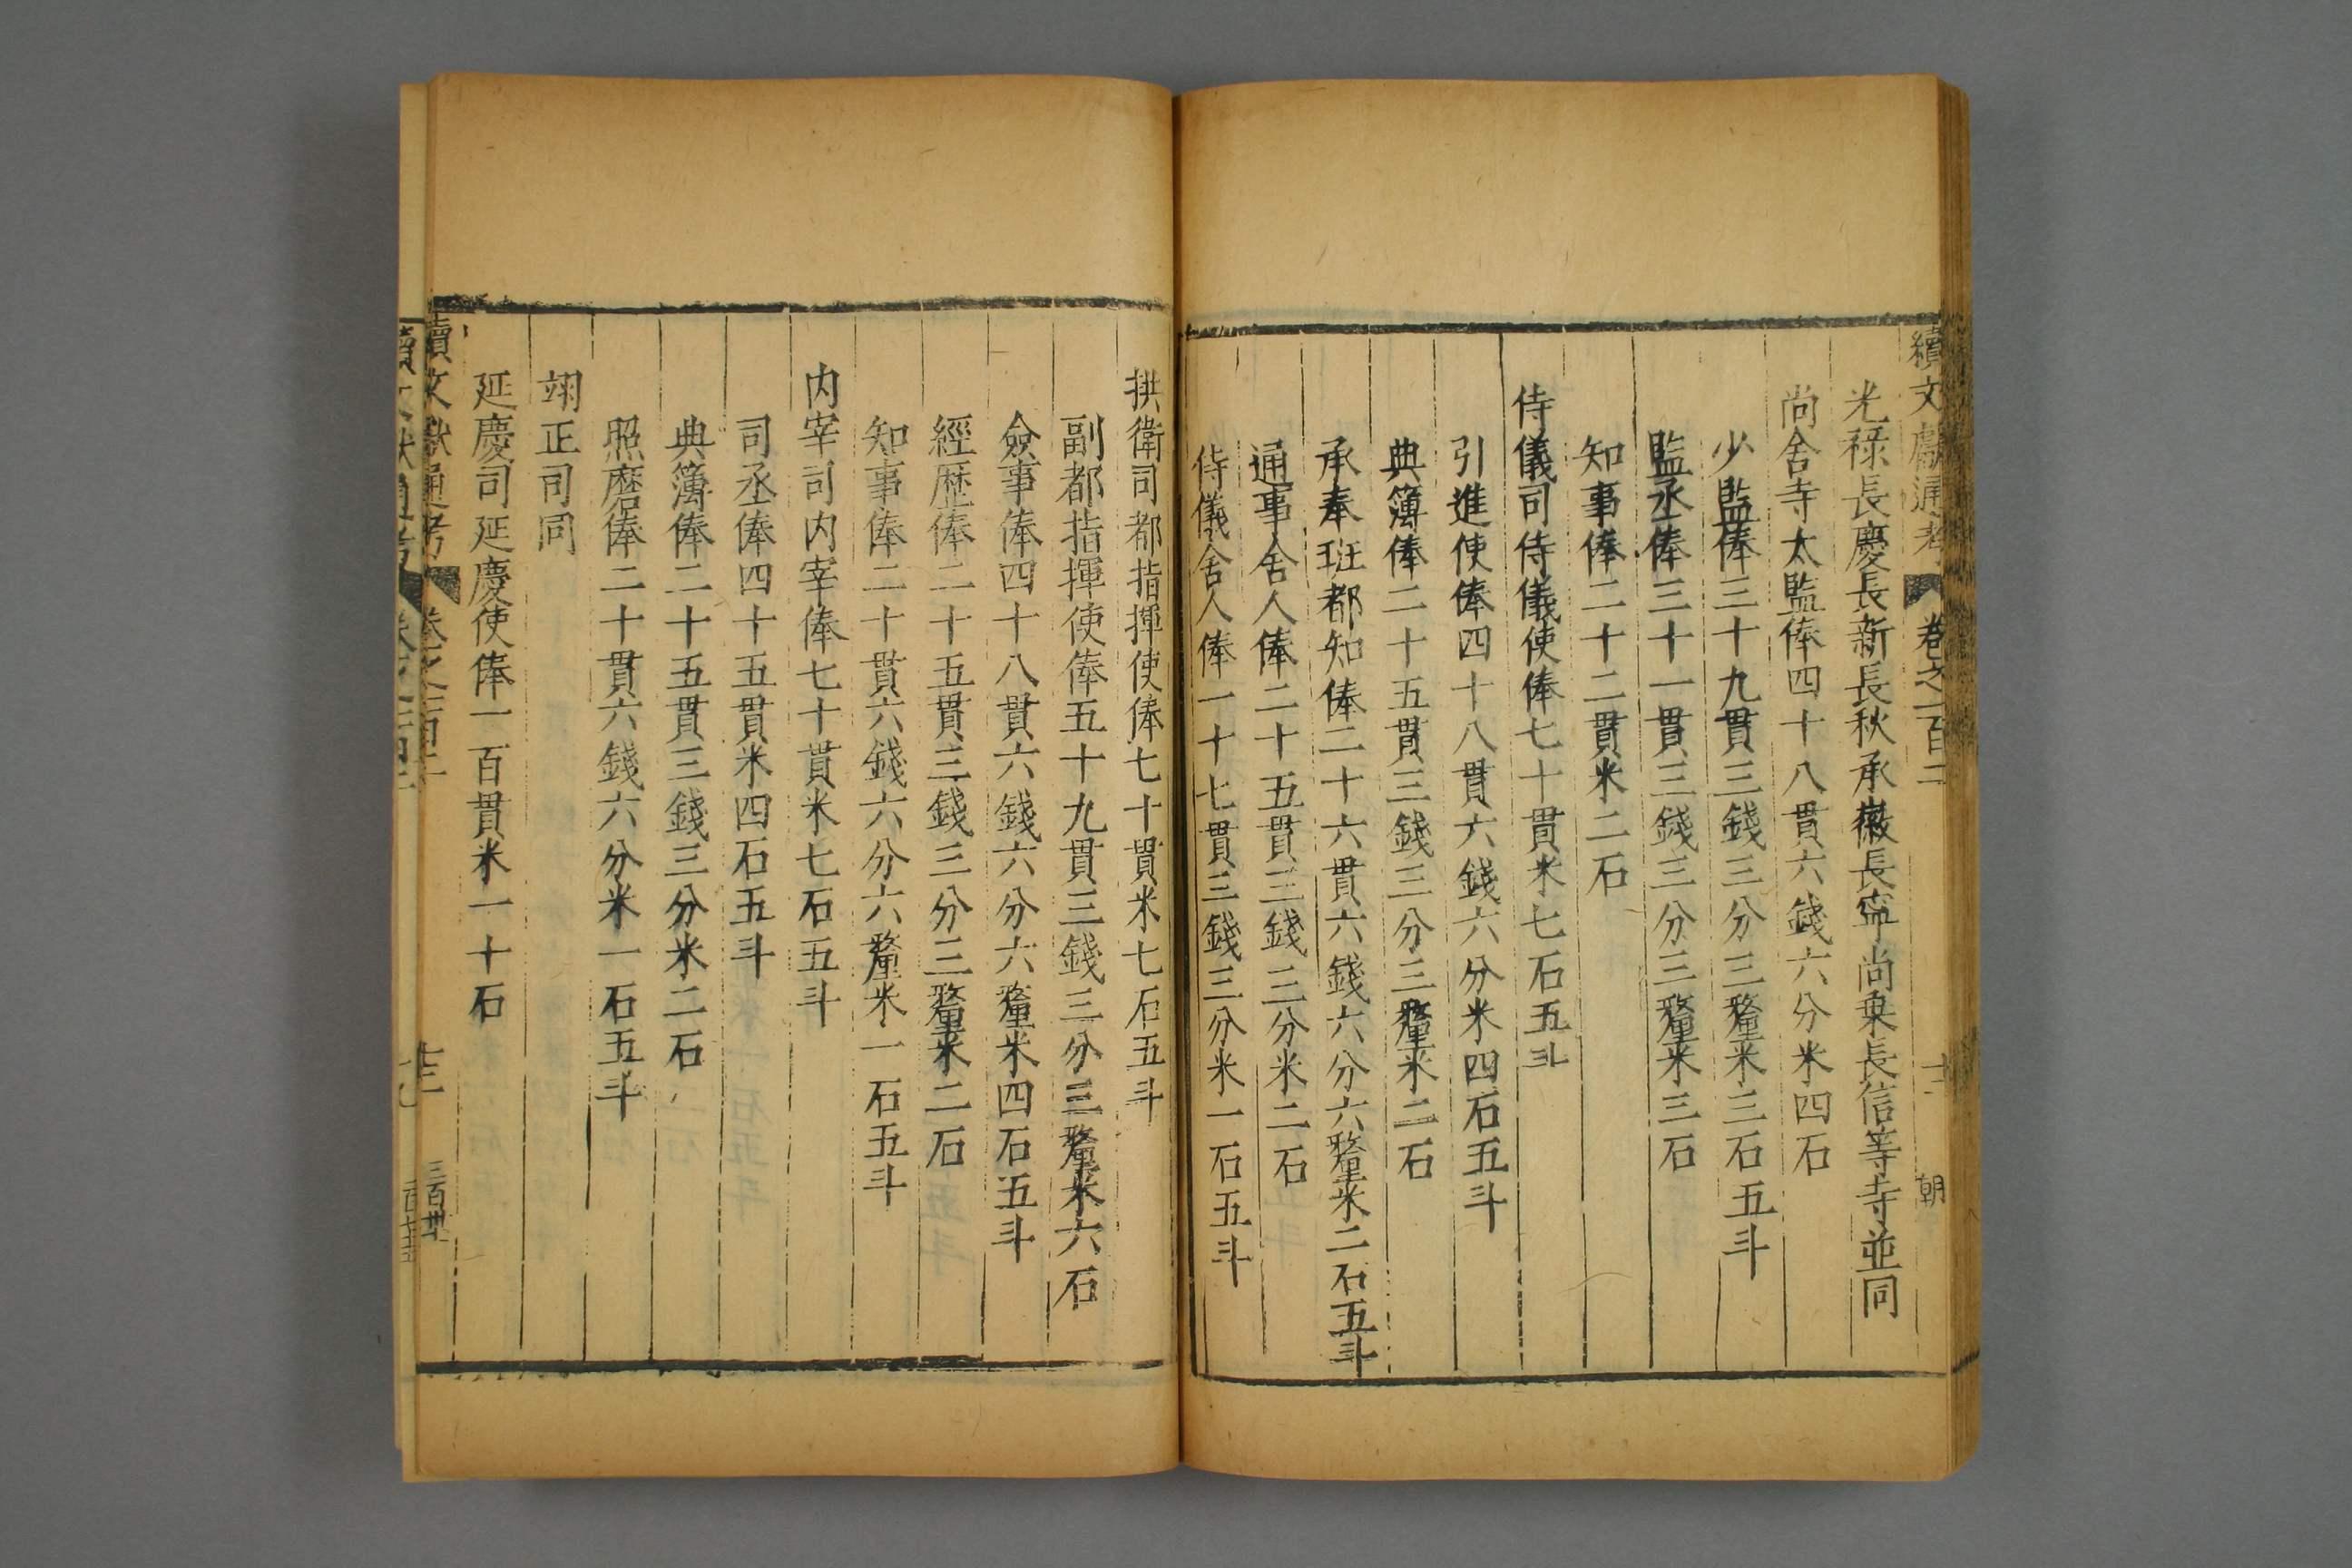 續文獻通考 卷之一百二
光祿長慶長新長秋承徽長寧尚乗長信等寺並同
尚舍寺太監俸四十八貫六錢六分米四石
少監俸三十九貫三錢三分三釐米三石五斗
監丞俸三十一貫三錢三分三釐米三石
知事俸二十二貫米二石
侍儀司侍儀使俸七十貫米七石五斗
引進使俸四十八貫六錢六分米四石五斗
典簿俸二十五貫三錢三分三釐米二石
承奉班都知俸二十六貫六錢六分六釐米二石五斗
通事舍人俸二十五貫三錢三分米二石
侍儀舍人俸一十七貫三錢三分米一石五斗
拱衛司都指揮使俸七十貫米七石五斗
副都指揮使俸五十九貫三錢三分三釐米六石
僉事俸四十八貫六錢六分六釐米四石五斗
經歷俸二十五貫三錢三分三釐米二石
知事俸二十貫六錢六分六釐米一石五斗
内宰司内宰俸七十貫米七石五斗
司丞俸四十五貫米四石五斗
典簿俸二十五貫三錢三分米二石
照磨俸二十貫六錢六分米一石五斗
翊正司同
延慶司延慶使俸一百貫米一十石
續文獻通考